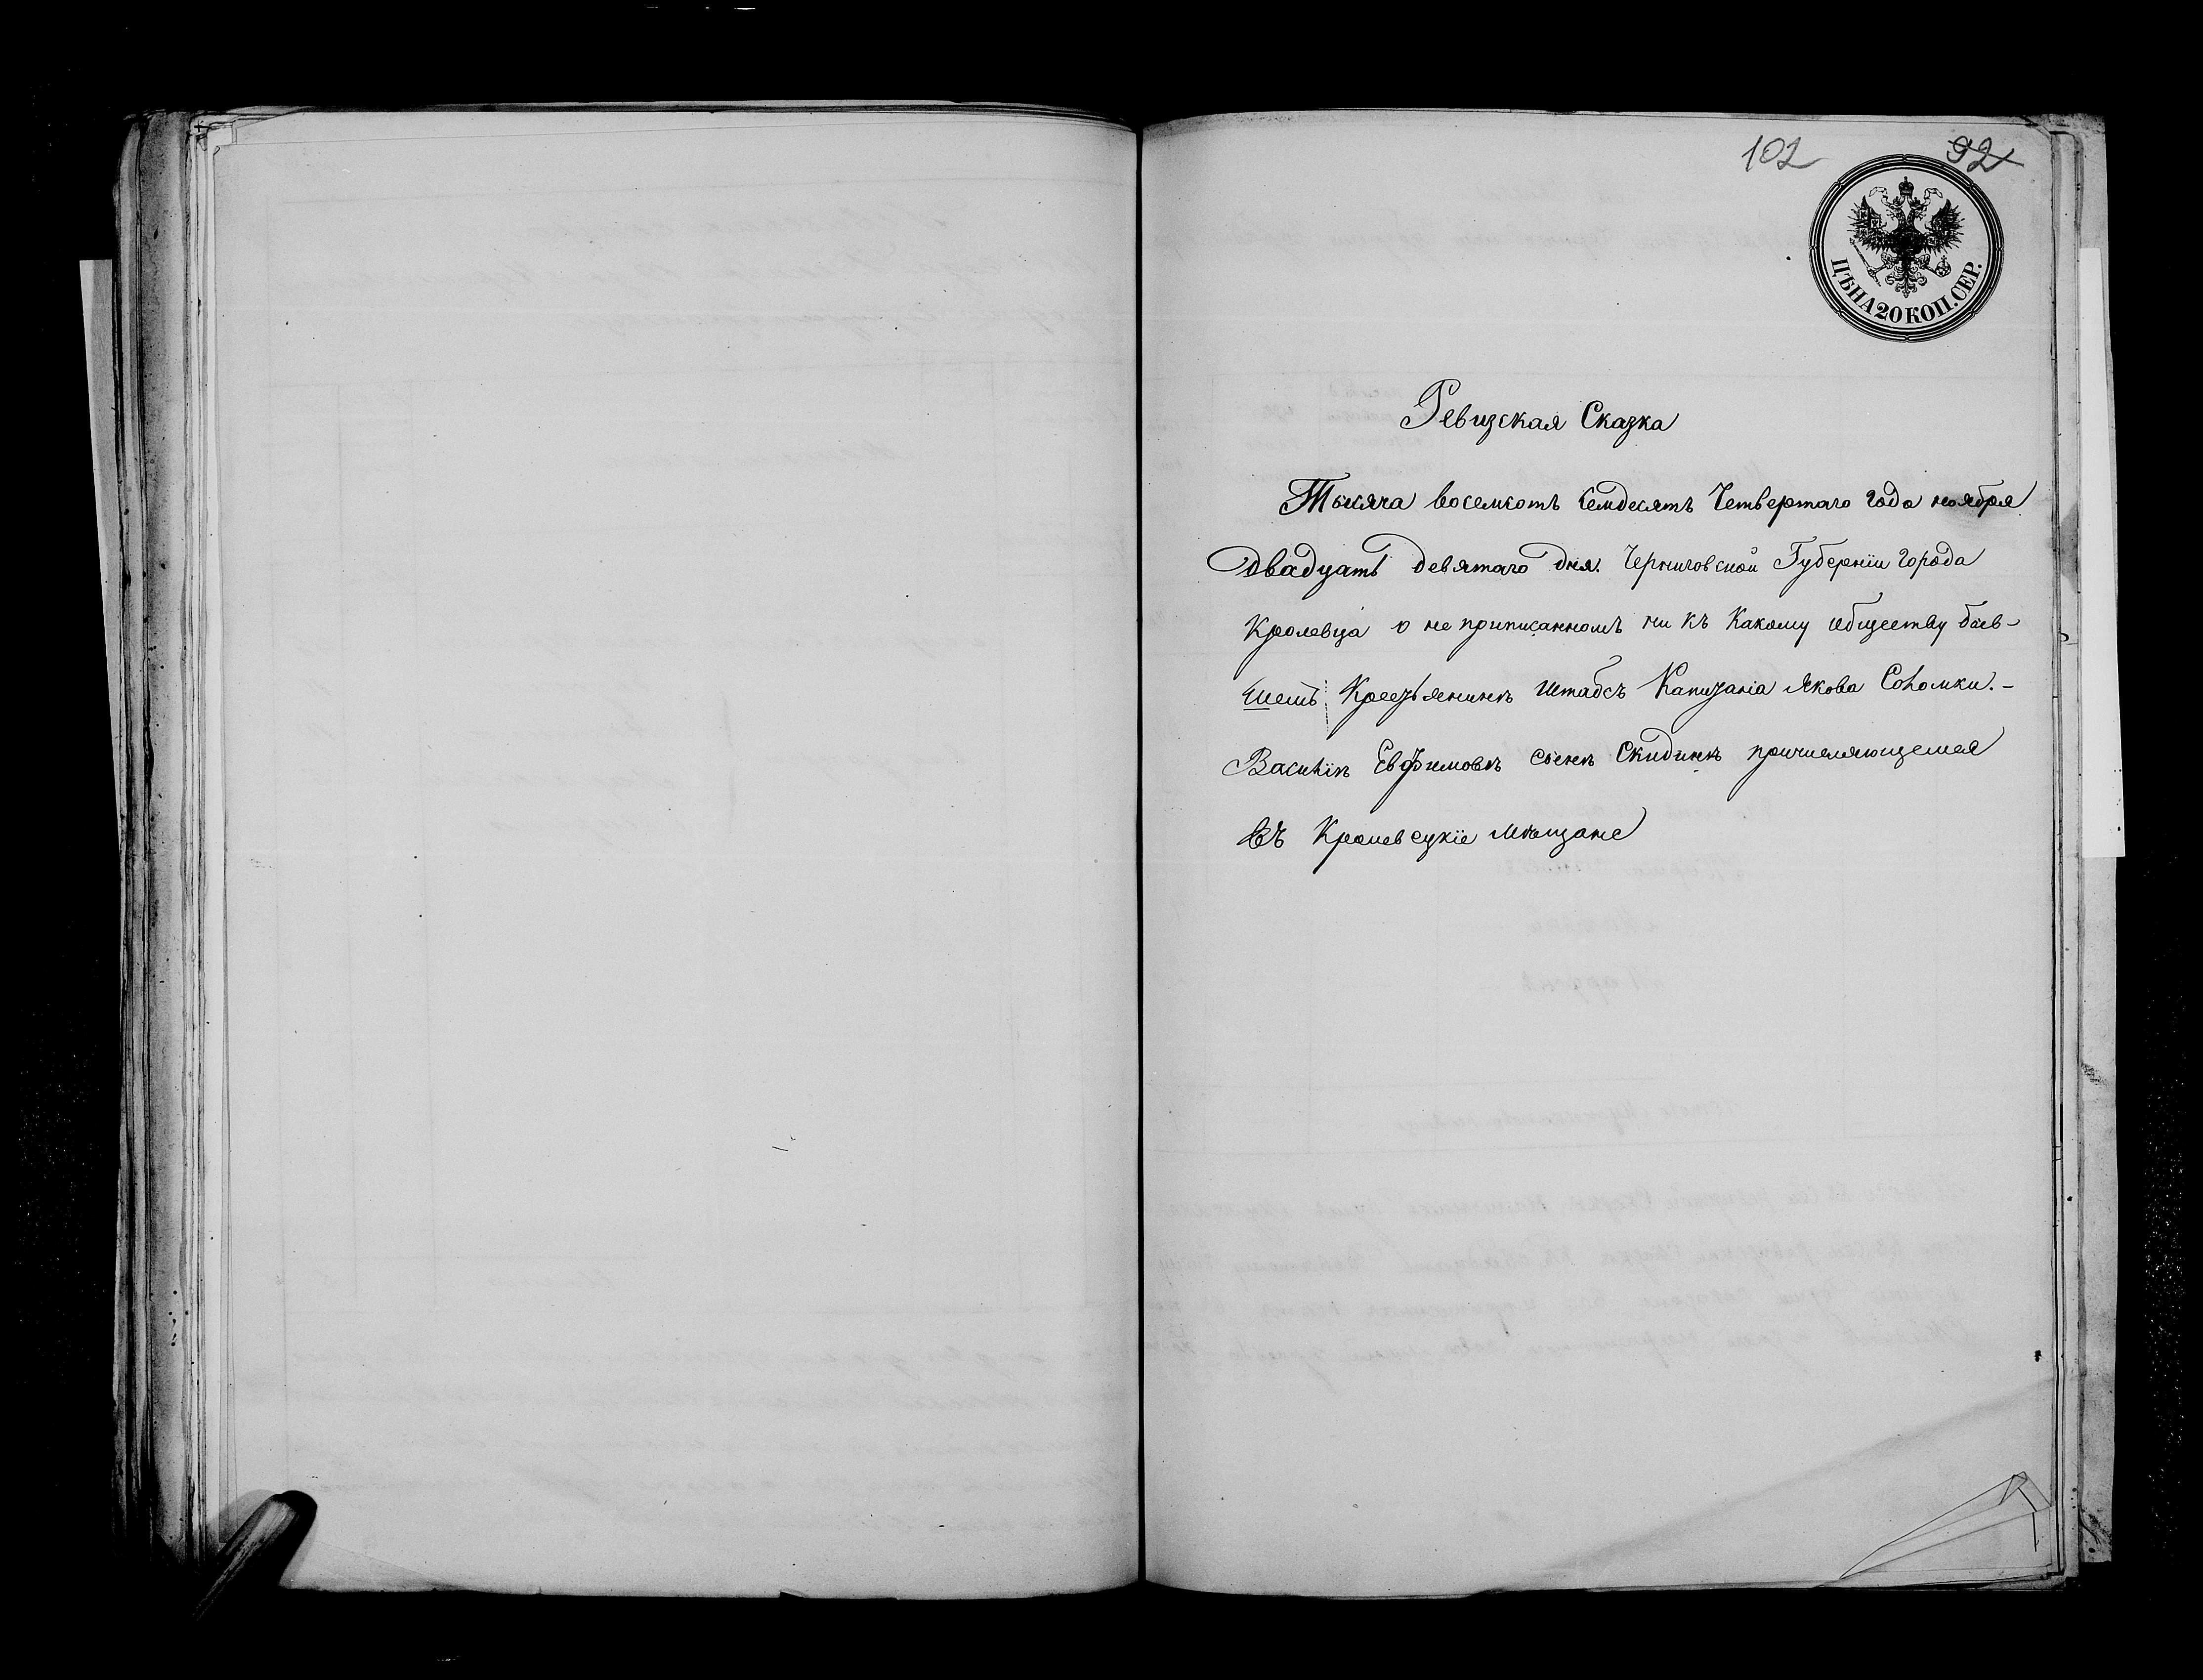 102 92
ЦѢНА 20 КОП. СЕР.
Ревизская Сказка
Тысяча восемсотъ семдесятъ Четвертаго года ноября
двадцать девятаго дня. Черниговской Губерніи города
Кролевца о не приписанномъ ни къ Какому обществу быв-
шемъ Крестьянинъ Штабсъ Капитана Якова Соломки.-
Василій Евфимовъ сынъ Скидинъ причисляющемся
въ Кролевецкіе мѣщане